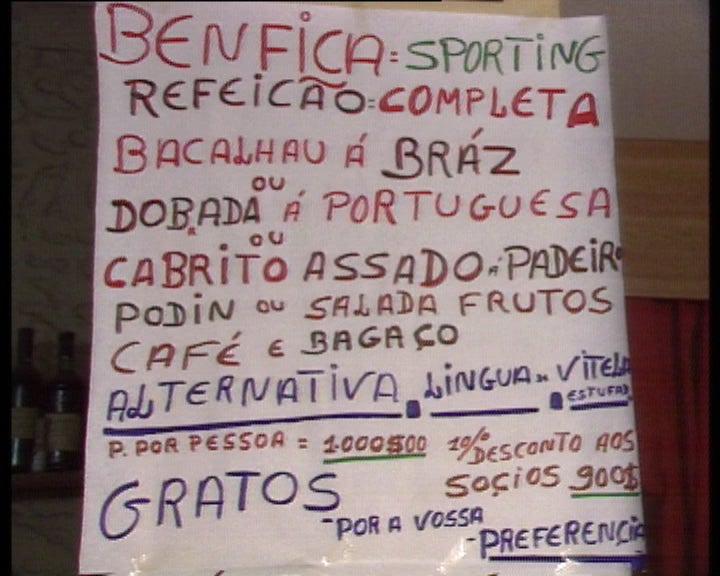 BENFICA = SPORTING
REFEICÃO = COMPLETA
BACALHAU Á BRÁZ
OU
DOBRADA Á PORTUGUESA
OU
CABRITO ASSADO A PADEIR
PODIN OU SALADA FRUTOS
CAFÉ E BAGAÇO
ALTERNATIVA. LINGUA DE VITELA
ESTUFAD
P. POR PESSOA = 1000$00 10% DESCONTO AOS
SOÇIOS 900$
GRATOS
- POR A VOSSA
- PREFERENÇIA